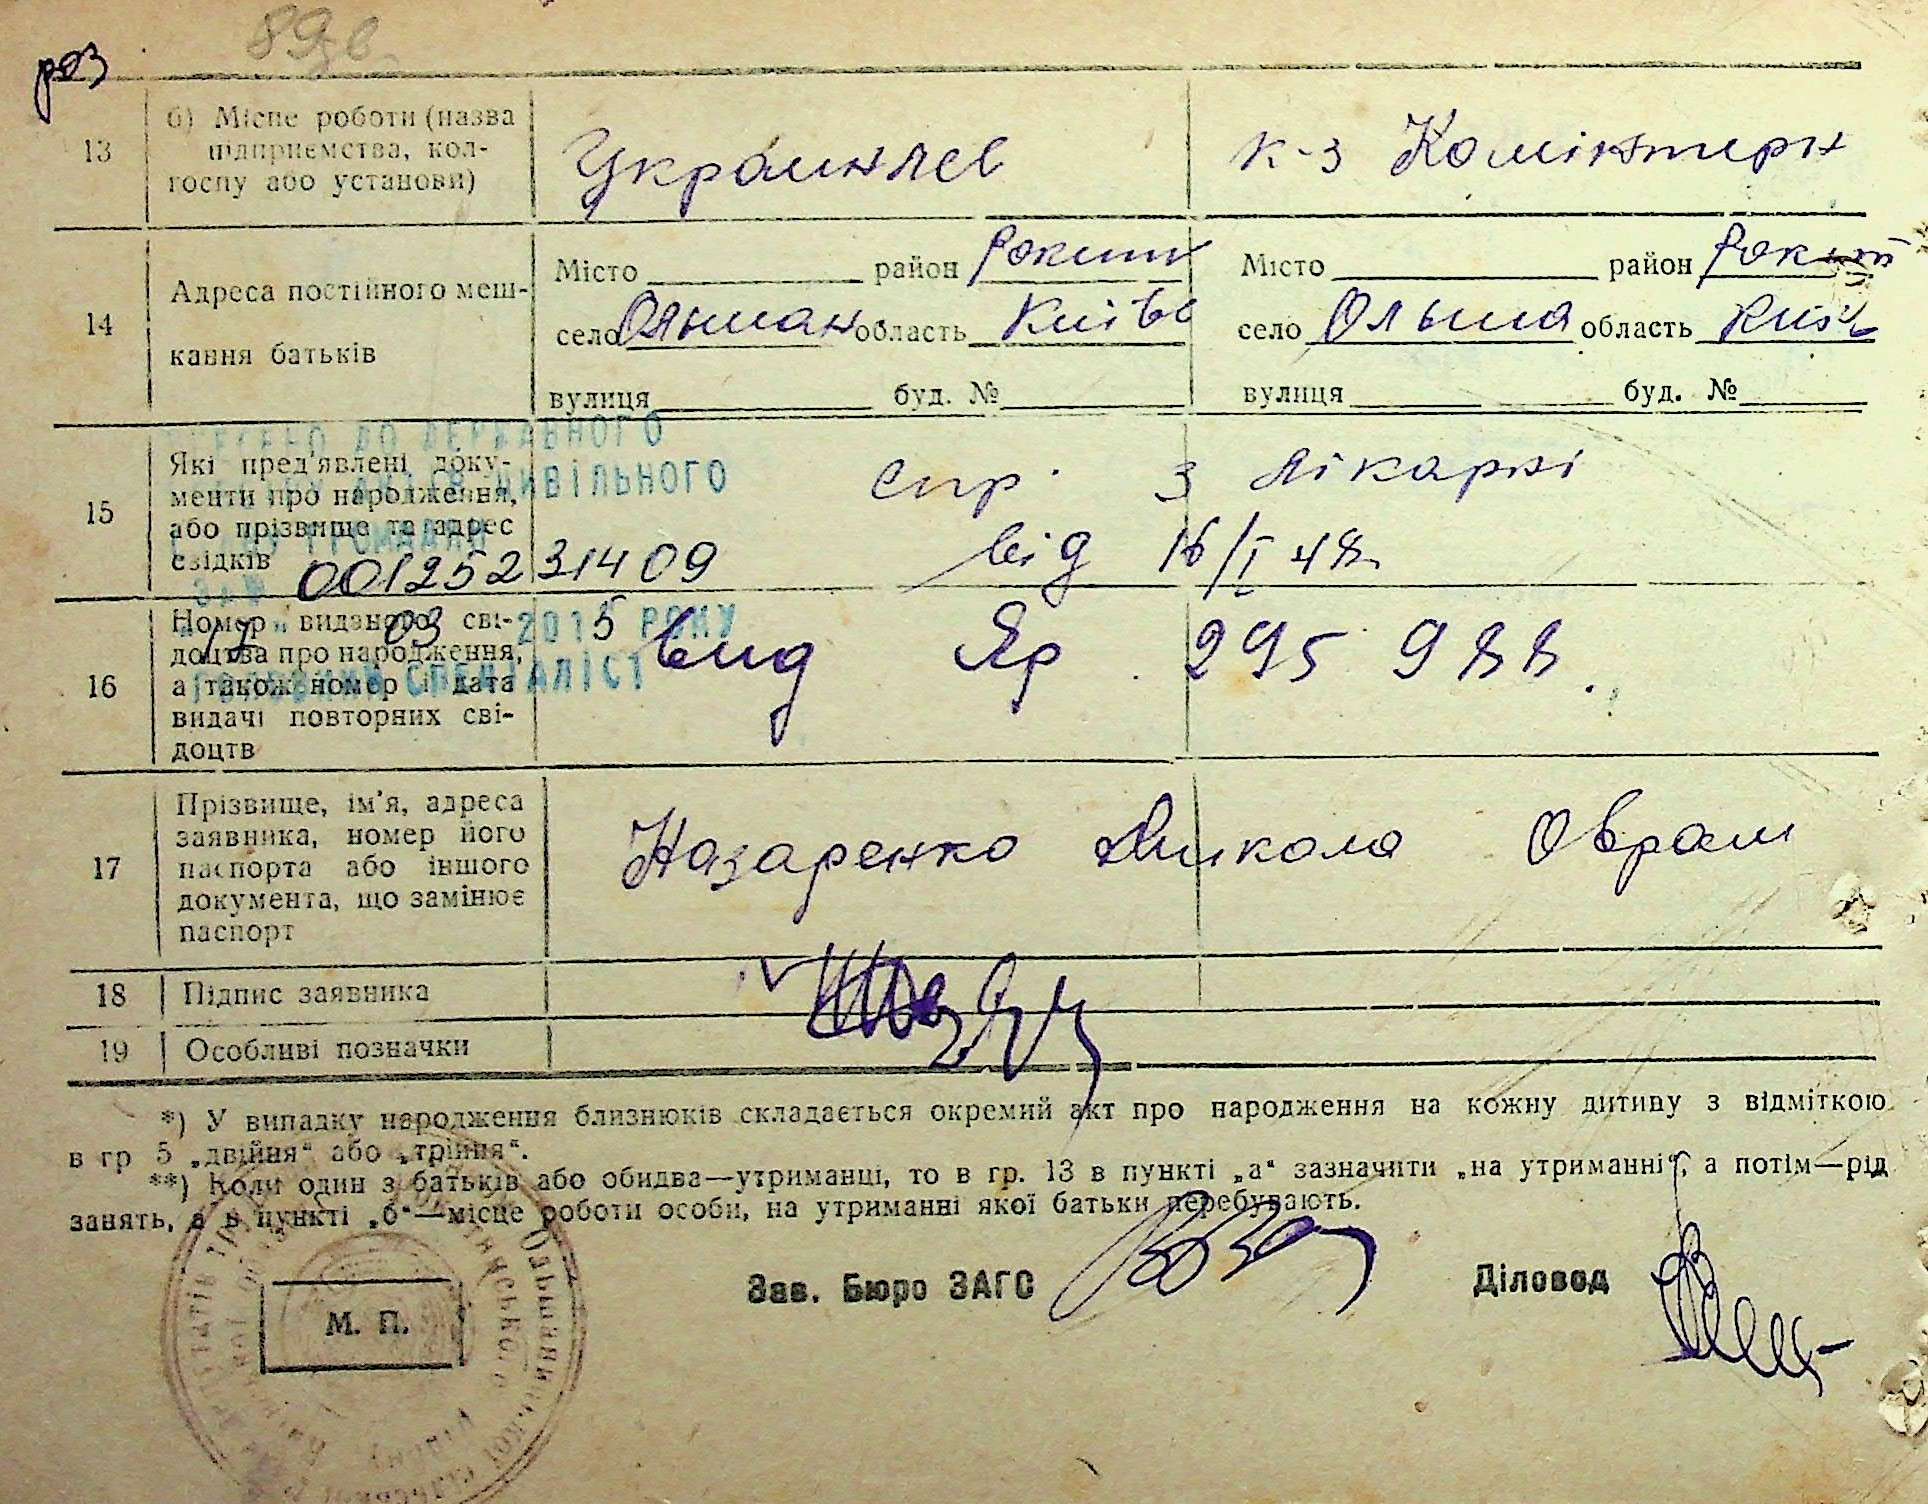 89зв
роз
13
б) Місце роботи (назва
підприємства, кол-
госпу або установи)
Украинлес
к-з Комінтерн
14
Адреса постійного меш-
кання батьків
Місто район Рокитн
село Ольшан область Київс
вулиця буд. №
Місто район Рокит
село Ольша область Київ
вулиця буд. №
15
Які пред'явлені доку-
менти про народження,
або прізвище та адрес
свідків
Спр. з лікарні
від 16/I 48
ДО ДЕРЖАВНОГО
ЦИВІЛЬНОГО
ГРОМАДЯН
00125231409
03 2015 РОКУ
ГОЛОВНИЙ СПЕЦІАЛІСТ
16
Номер виданого сві-
доцтва про народження,
а також номер і дата
видачі повторних сві-
доцтв
вид Яр 295988.
17
Прізвище, ім'я, адреса
заявника, номер його
паспорта або іншого
документа, що замінює
паспорт
Назаренко Микола Оврам
18
Підпис заявника
19
Особливі позначки
*) У випадку народження близнюків складається окремий акт про народження на кожну дитину з відміткою
в гр 5 „двійня“ або „трійня“.
**) Коли один з батьків або обидва—утриманці, то в гр. 13 в пункті „а“ зазначити „на утриманні“, а потім—рід
занять, а в пункті „б“—місце роботи особи, на утриманні якої батьки перебувають.
Зав. Бюро ЗАГС
Діловод
М. П.